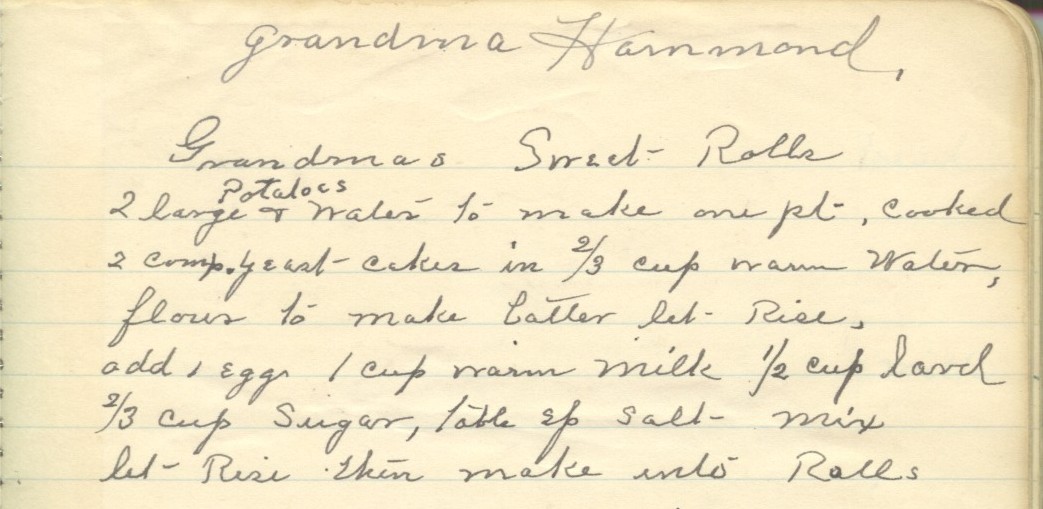 Grandma Hammond,
Grandmas Sweet Rolls
2 large Potatoes & Water to make one pt, cooked
2 comp. yeast cakes in 2/3 cup warm Water,
flour to make batter let Rise,
add 1 egg 1 cup warm milk 1/2 cup lard
2/3 cup Sugar, table sp salt mix
let Rise then make into Rolls